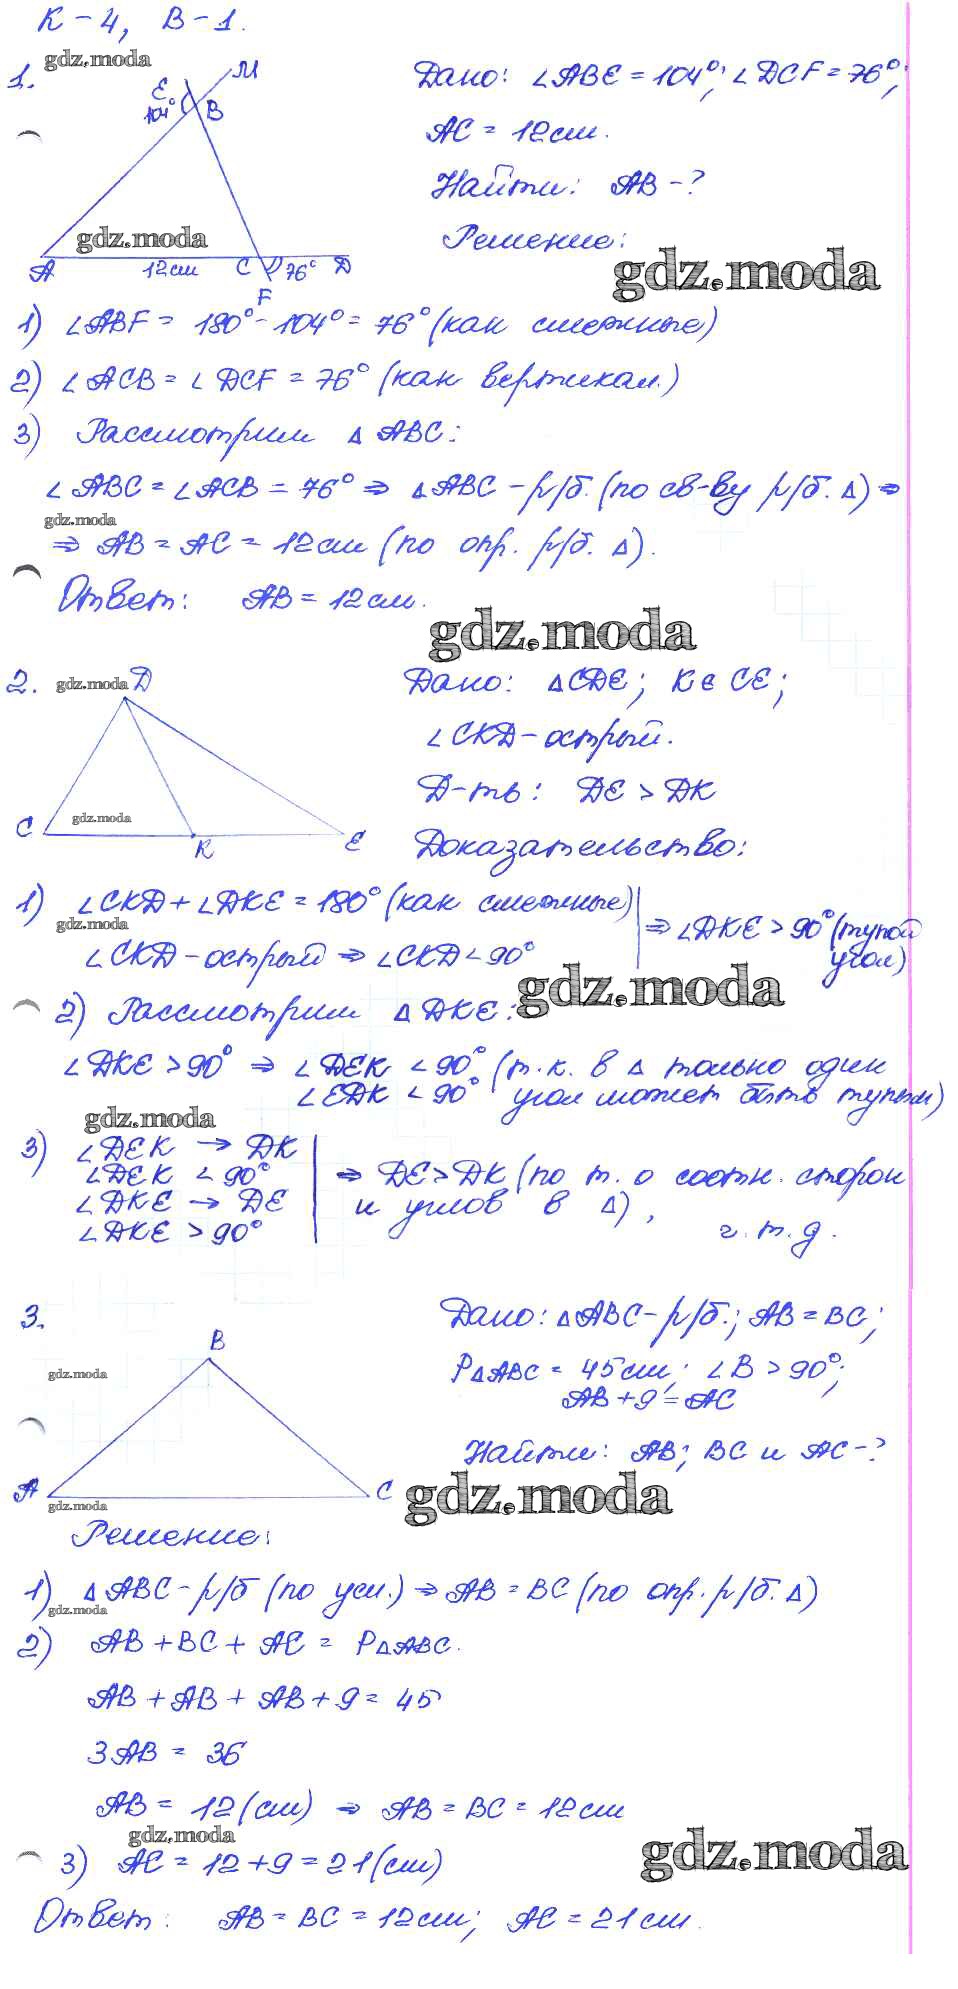 К-4, В-1.
gdz.moda
1.
М
Е
104°
В
Дано: ∠ABE = 104°; ∠DCF = 76°;
AC = 12 см.
Найти: AB - ?
Решение:
gdz.moda
gdz.moda
А 12 см С 76° D
F
1) ∠ABF = 180° - 104° = 76° (как смежные)
2) ∠ACB = ∠DCF = 76° (как вертикал.)
3) Рассмотрим △ ABC:
∠ABC = ∠ACB = 76° ⇒ △ABC - р/б. (по св-ву р/б. △) ⇒
gdz.moda
⇒ AB = AC = 12 см (по опр. р/б. △).
Ответ: AB = 12 см.
gdz.moda
2. gdz.moda D
Дано: △CDE; K ∈ CE;
∠CKD - острый.
Д-ть: DE > DK
gdz.moda
С К Е
Доказательство:
1) ∠CKD + ∠DKE = 180° (как смежные)
gdz.moda
⇒ ∠DKE > 90° (тупой
угол)
∠CKD - острый ⇒ ∠CKD < 90°
gdz.moda
2) Рассмотрим △ DKE:
∠DKE > 90° ⇒ ∠DEK < 90° (т.к. в △ только один
∠EDK < 90° угол может быть тупым)
gdz.moda
3) ∠DEK → DK
∠DEK < 90°
∠DKE → DE
∠DKE > 90°
⇒ DE > DK (по т. о соотн. сторон
и углов в △),
ч.т.д.
3.
В
Дано: △ABC - р/б.; AB = BC;
gdz.moda
P△ABC = 45 см; ∠B > 90°;
AB + 9 = AC
Найти: AB; BC и AC - ?
А С
gdz.moda
gdz.moda
Решение:
1) △ABC - р/б (по усл.) ⇒ AB = BC (по опр. р/б. △)
gdz.moda
2) AB + BC + AC = P△ABC.
AB + AB + AB + 9 = 45
3AB = 36
AB = 12 (см) ⇒ AB = BC = 12 см
gdz.moda
gdz.moda
3) AC = 12 + 9 = 21 (см)
Ответ: AB = BC = 12 см; AC = 21 см.